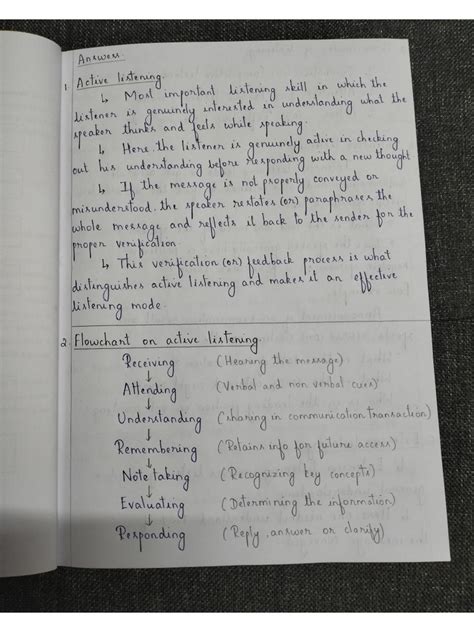 Answers.
1 Active listening.
↳ Most important listening skill in which the
listener is genuinely interested in understanding what the
speaker thinks and feels while speaking.
↳ Here the listener is genuinely active in checking
out his understanding before responding with a new thought
↳ If the message is not properly conveyed or
misunderstood, the speaker restates (or) paraphrases the
whole message and reflects it back to the sender for the
proper verification.
↳ This verification (or) feedback process is what
distinguishes active listening and makes it an effective
listening mode.
2 Flowchart on active listening.
Receiving (Hearing the message)
↓
Attending (Verbal and non verbal cues)
↓
Understanding (sharing in communication transaction)
↓
Remembering (Retains info for future access)
↓
Note taking (Recognizing key concepts)
↓
Evaluating (Determining the information)
↓
Responding (Reply, answer or clarify)